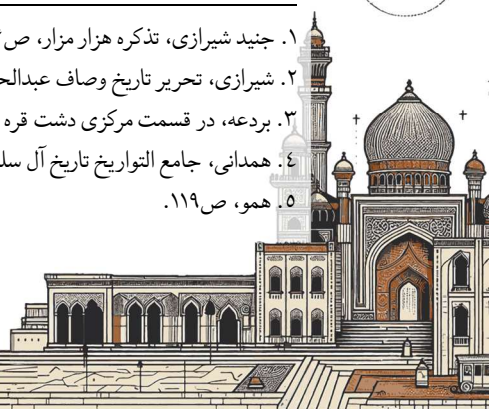 ۱. جنید شیرازی، تذکره هزار مزار، ص
۲. شیرازی، تحریر تاریخ وصاف
۳. بردعه، در قسمت مرکزی دشت قره
٤. همدانی، جامع التواریخ تاریخ آل
٥. همو، ص۱۱۹.